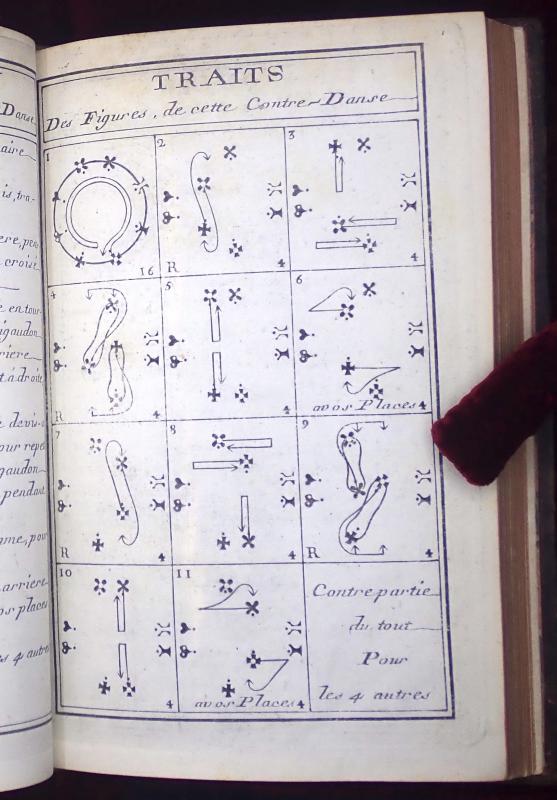 TRAITS
Des Figures, de cette Contre-Danse
1
16
2
R
4
3
4
4
R
4
5
4
6
avos Places
4
7
R
4
8
4
9
R
4
10
4
11
avos Places
4
Contre partie
du tout
Pour
les 4 autres
Danse
aire
is, tra-
croisé
en tour-
igaudon
rriere
t á droite
pour repe
gaudon
pendant
gme, pour
arriere
os places
4 autre